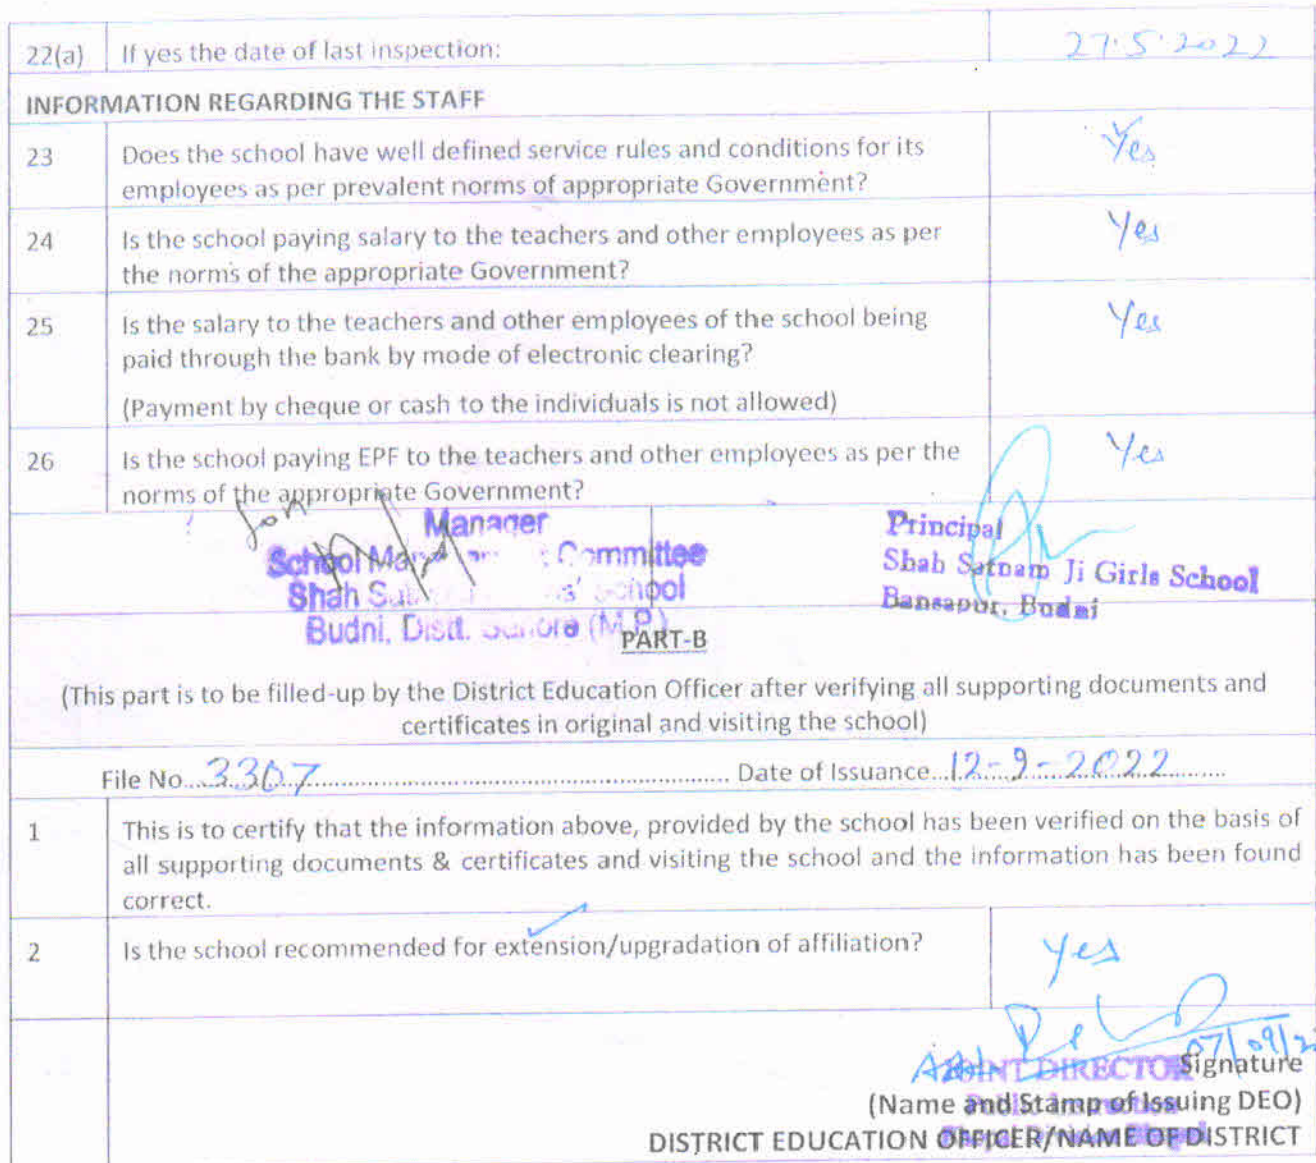 22(a) If yes the date of last inspection: 27.5.2022
INFORMATION REGARDING THE STAFF
23 Does the school have well defined service rules and conditions for its Yes
employees as per prevalent norms of appropriate Government?
24 Is the school paying salary to the teachers and other employees as per Yes
the norms of the appropriate Government?
25 Is the salary to the teachers and other employees of the school being Yes
paid through the bank by mode of electronic clearing?
(Payment by cheque or cash to the individuals is not allowed)
26 Is the school paying EPF to the teachers and other employees as per the Yes
norms of the appropriate Government?
for
Manager
School Committee
Shah School
Budni, Distt. Sehore (M.P.)
Principal
Shah Satnam Ji Girls School
Bansapur, Budni
PART-B
(This part is to be filled-up by the District Education Officer after verifying all supporting documents and
certificates in original and visiting the school)
File No. 3307 Date of Issuance 12-9-2022
1 This is to certify that the information above, provided by the school has been verified on the basis of
all supporting documents & certificates and visiting the school and the information has been found
correct.
2 Is the school recommended for extension/upgradation of affiliation? yes
07/09/2
JOINT DIRECTOR Signature
(Name and Stamp of Issuing DEO)
DISTRICT EDUCATION OFFICER/NAME OF DISTRICT